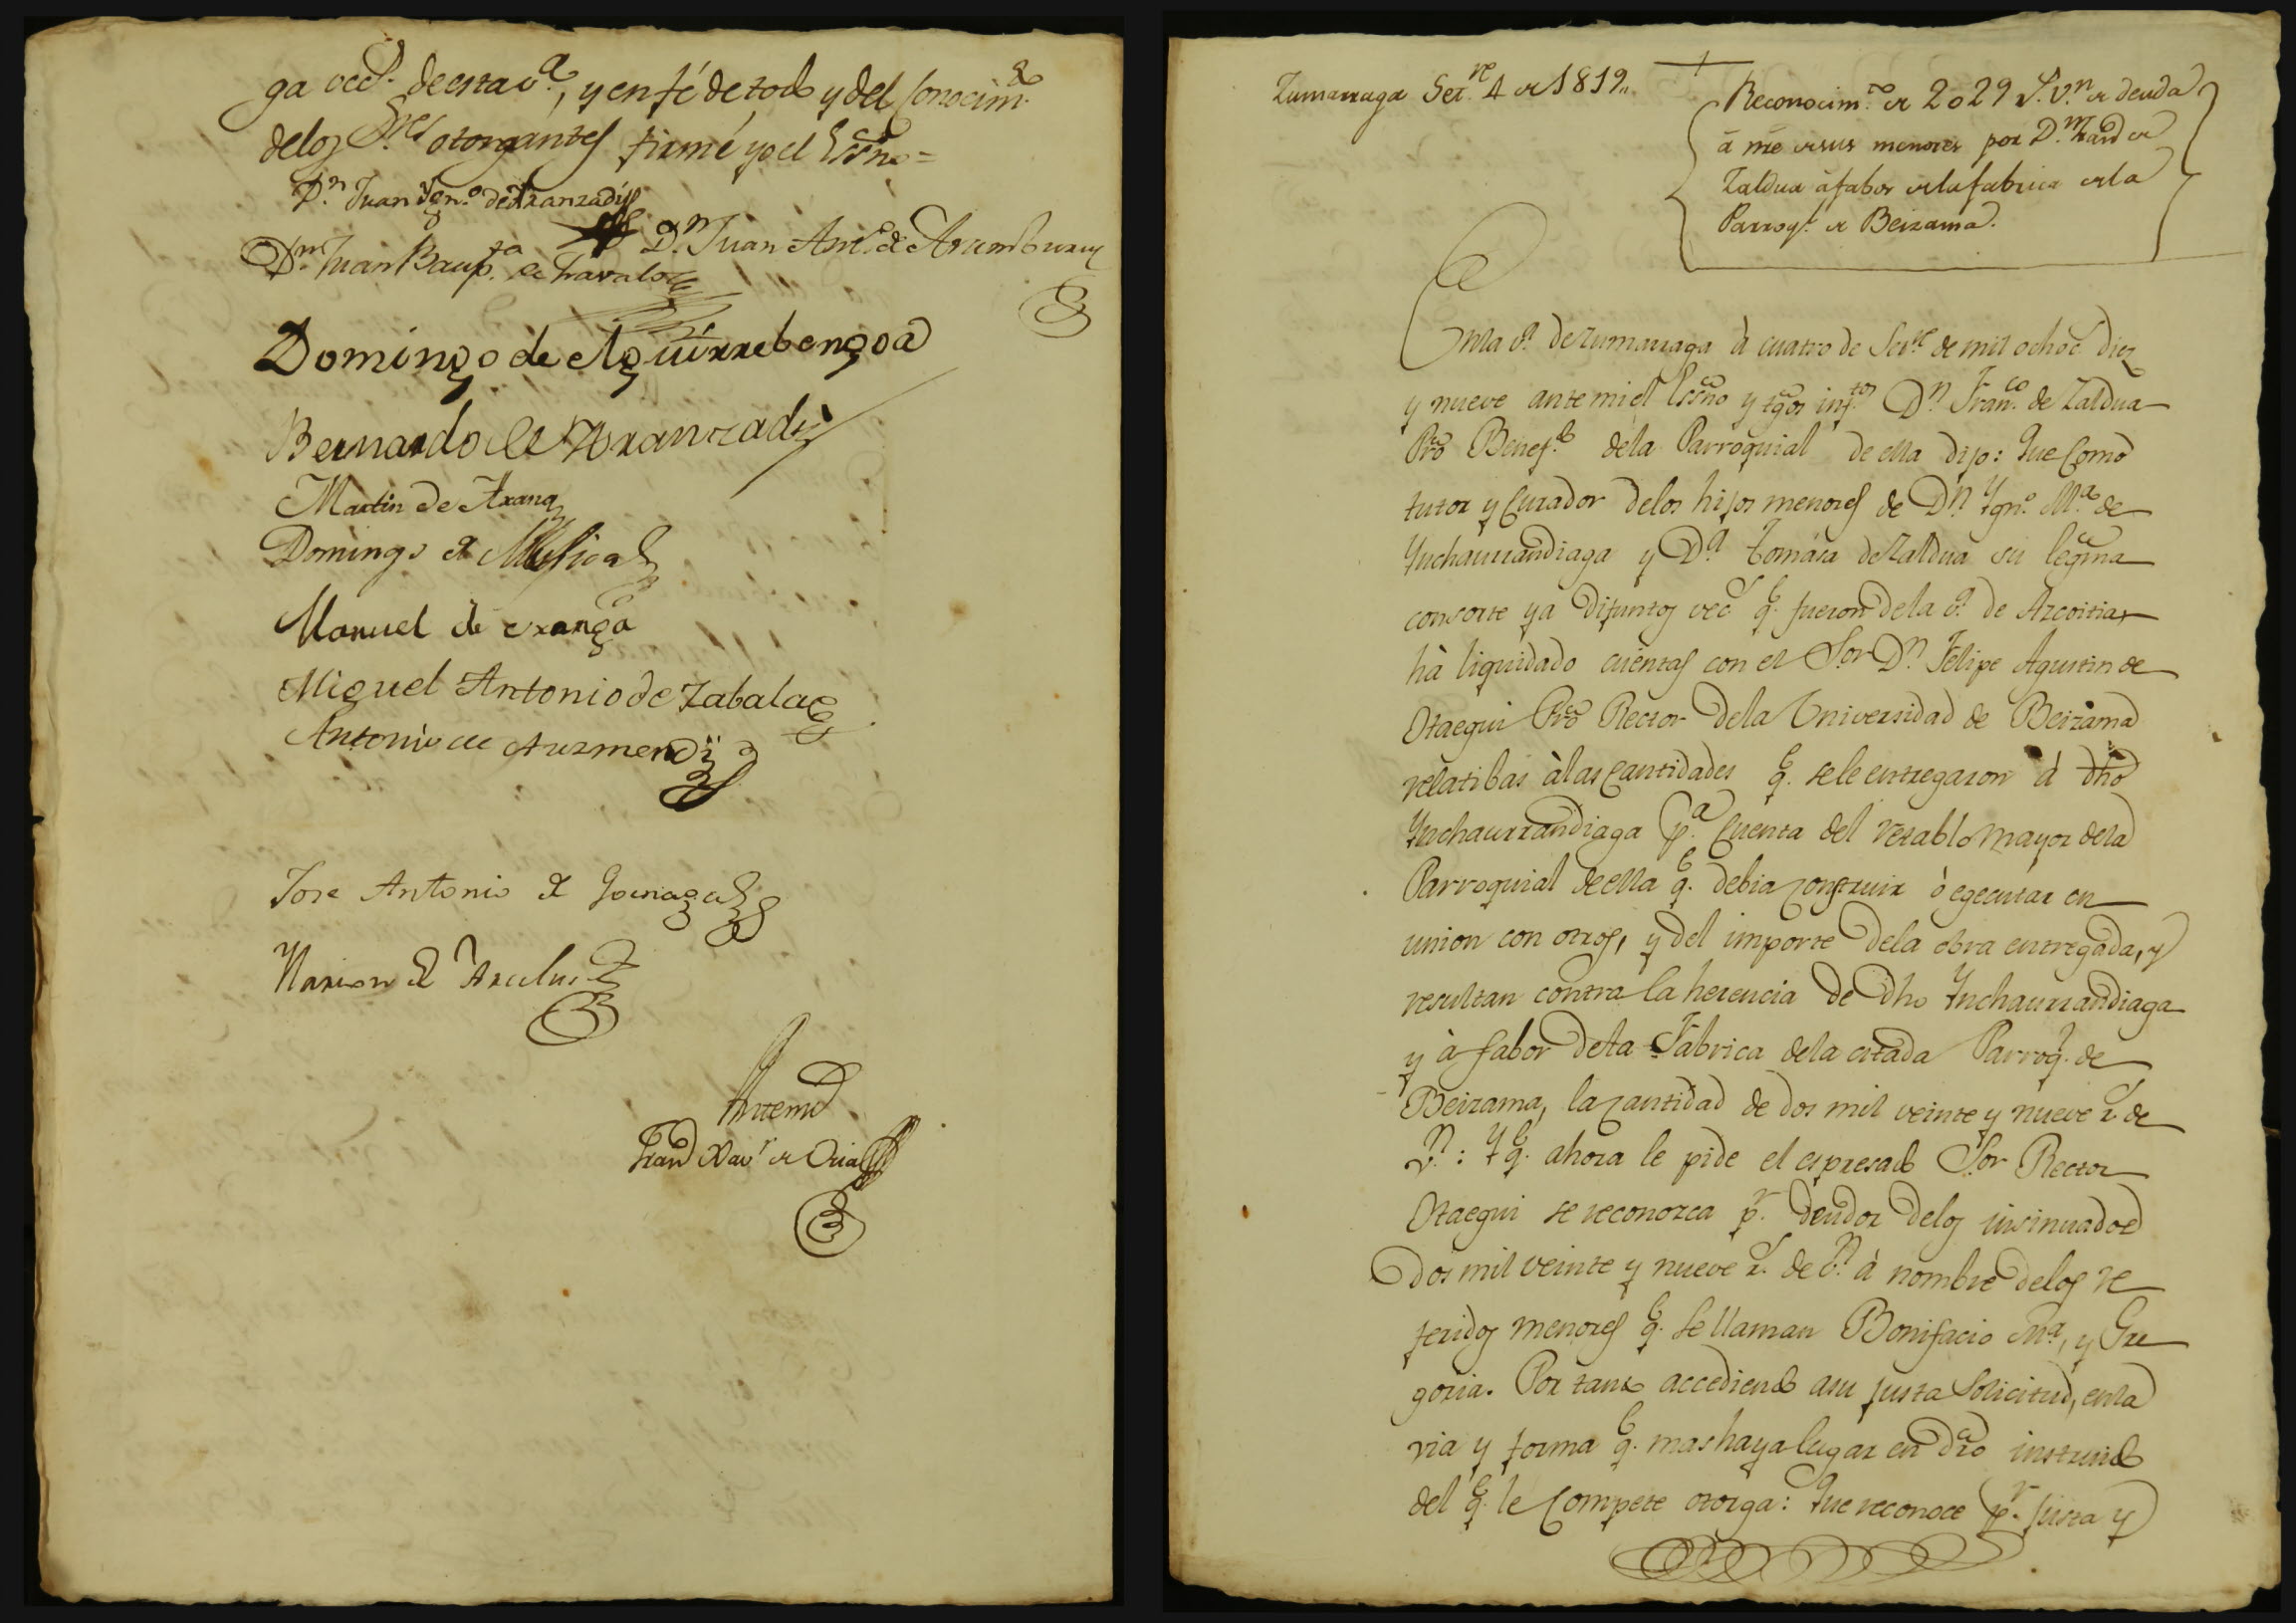 ga vec.º de esta v.ª, y en fé de todo y del Conocim.to
de los S.res otorgantes firmé yo el Essno =
D.n Juan Ygn.º de Aranzadi
D.n Juan Ant.º de Aramburu
D.n Juan Baup.ta de
Domingo de Aguirrebengoa
Bernardo de Aranzadi
Martin de Arana
Domingo de Mugica
Manuel de aranga
Miguel Antonio de Zabala
Antonio de Auzmendi
Jose Antonio de Goenaga
de
Antemi
Fran.co Xav.r de Oria
Zumarraga Set.re 4 de 1819.,
Reconocim.to de 2029 r.s v.n de deuda
á nre de sus menores por D.n Fran.co de
Zaldua á fabor de la fabrica de la
Parroq.l de Beizama.
En la v.ª de Zumarraga á cuatro de Set.re de mil ochoc.s diez
y nueve ante mi el Essno y tgos inf.tos D.n Fran.co de Zaldua
Pro Benef.do de la Parroquial de ella dijo: Que como
tutor y Curador de los hijos menores de D.n Ygn.º M.ª de
Ynchaurrandiaga y D.ª Tomasa de Zaldua su legma
consorte ya difuntos vec.s q.e fueron de la v.ª de Azcoitia,
hà liquidado cuentas con el S.or D.n Felipe Agustin de
Otaegui Pro Rector de la Universidad de Beizama
relatibas à las cantidades q.e se le entregaron á dho
Ynchaurrandiaga p.ª cuenta del retablo mayor de la
Parroquial de ella q.e debia construir ò egecutar en
union con otros, y del importe de la obra entregada, y
resultan contra la herencia de dho Ynchaurrandiaga
y à fabor de la Fabrica de la citada Parroq.l de
Beizama, la cantidad de dos mil veinte y nueve r.s de
v.n: Y q.e ahora le pide el espresado S.or Rector
Otaegui se reconozca p.r deudor de los insinuados
dos mil veinte y nueve r.s de v.n à nombre de los re
feridos menores q.e se llaman Bonifacio M.ª, y Gre
goria. Por tanto accediendo a su justa solicitud, en la
via y forma q.e mas haya lugar en dro instruido
del q.e le compete otorga: Que reconoce p.r justa y